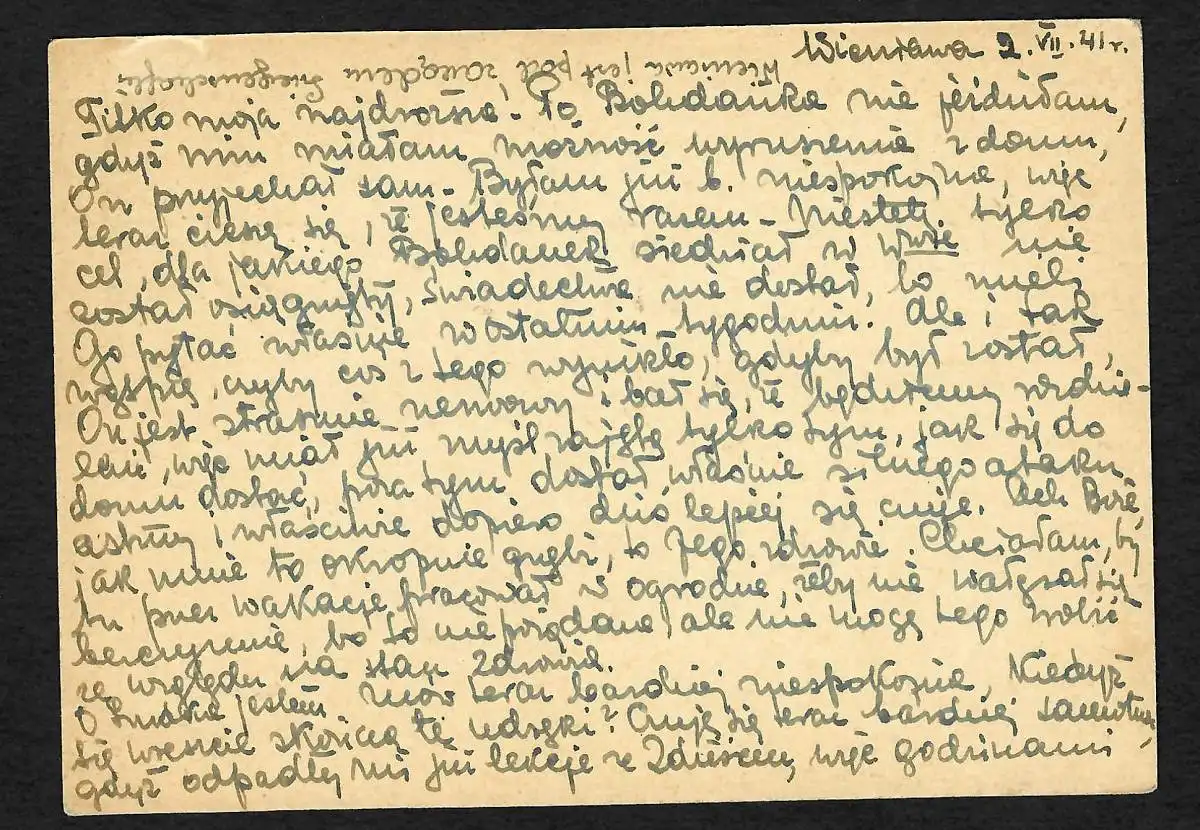 Wieniawa 2.VII.41r.
Wieniawa jest pod zarządem Liegenschaft
Tilko moja najdroższa. Po Bohdanka nie jeździłam,
gdyż nim miałam możność wyruszenia z domu,
On przyjechał sam. Byłam już b. niespokojna, więc
teraz cieszę się, że jesteśmy razem. Niestety, tylko
cel, dla jakiego Bohdanek siedział w nie
został osiągnięty, świadectwa nie dostał, bo mieli
Go pytać właśnie w ostatnim tygodniu. Ale i tak
wątpię, czyby coś z tego wynikło, gdyby był został,
On jest strasznie nerwowy i bał się, że będziemy rozdzie-
leni, więc miał już myśl zajętą tylko tym, jak się do
domu dostać, poza tym dostał właśnie silnego ataku
astmy i właściwie dopiero dziś lepiej się czuje. Ach Boże,
jak mnie to okropnie gnębi, to Jego zdrowie. Chciałam, by
tu przez wakacje pracował w ogrodzie, żeby nie wałęsał się
bezczynnie, bo to niepożądane ale nie mogę tego zrobić
ze względu na stan zdrowia.
O jestem znów teraz bardziej niespokojna, Kiedyż
się wreszcie skończą te udręki? Czuję się teraz bardziej samotna,
gdyż odpadły mi już lekcje ze Zdzisiem, więc godzinami